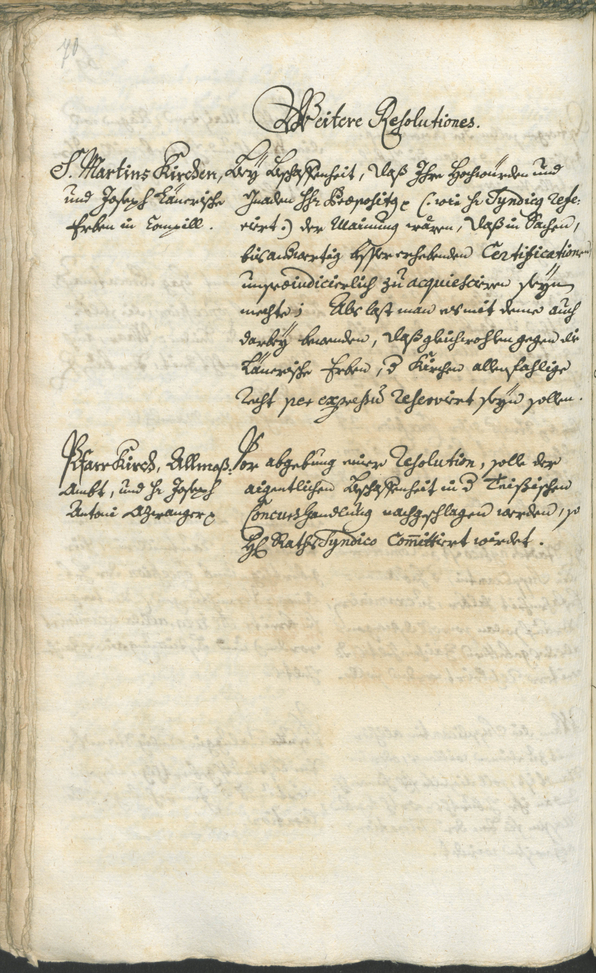 70
Weitere Resolutiones.
S. Martins Kirchen,
und Joseph Länerische
Erben in Campill.
Bey Beschaffenheit, daß Ihro Hochwürden und
Gnaden H: Praepositg (: wie H: Syndicg refe-
rirt :) der Mainung wären, daß in Sachen,
bis anderwertig besser erhebenden Certificationen
unpraeiudicierlich zu acquiesciren seyn
mechte; Als last man es mit deme auch
darbey bewenden, daß gleichwohlen gegen die
Länerische Erben, d Kirchen allenfahlige
Recht per expressum reserviert seyn sollen.
Pfarr Kirch, Allmoß-
Ambt, und H: Joseph
Antoni
Vor abgebung einer Resolution, solle der
aigentlichen Beschaffenheit in d
Concurs Handlung nachgeschlagen werden, so
H: Raths Syndico Committiert würdet.